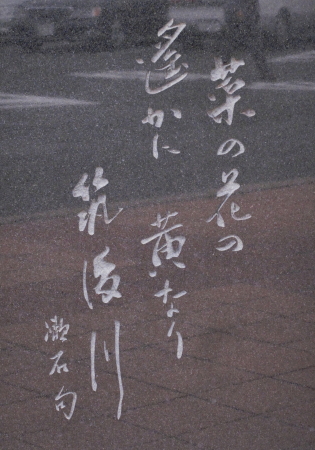 菜の花の
遥かに黄なり
筑後川
漱石句